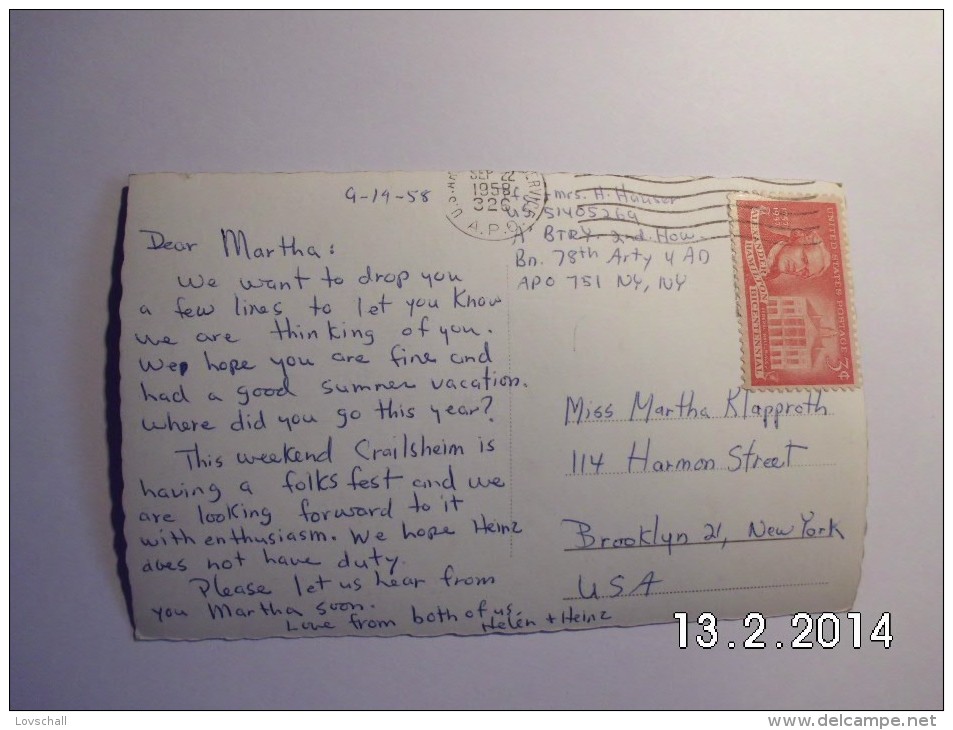 9-19-58
Dear Martha:
We want to drop you
a few lines to let you know
we are thinking of you.
We hope you are fine and
had a good summer vacation.
Where did you go this year?
This weekend Crailsheim is
having a folks fest and we
are looking forward to it
with enthusiasm. We hope Heinz
does not have duty.
Please let us hear from
you Martha soon.
Love from both of us.
Helen + Heinz
SEP 22
1958
326
A.P.O.
mrs. H. Hauser
51405269
A BTRY. 2nd How.
Bn. 78th Arty 4 AD
APO 751 NY, NY
UNITED STATES POSTAGE 3¢
ALEXANDER HAMILTON
BICENTENNIAL
Miss Martha Klapproth
114 Harmon Street
Brooklyn 21, New York
USA
13.2.2014
Lovschall
www.delcampe.net